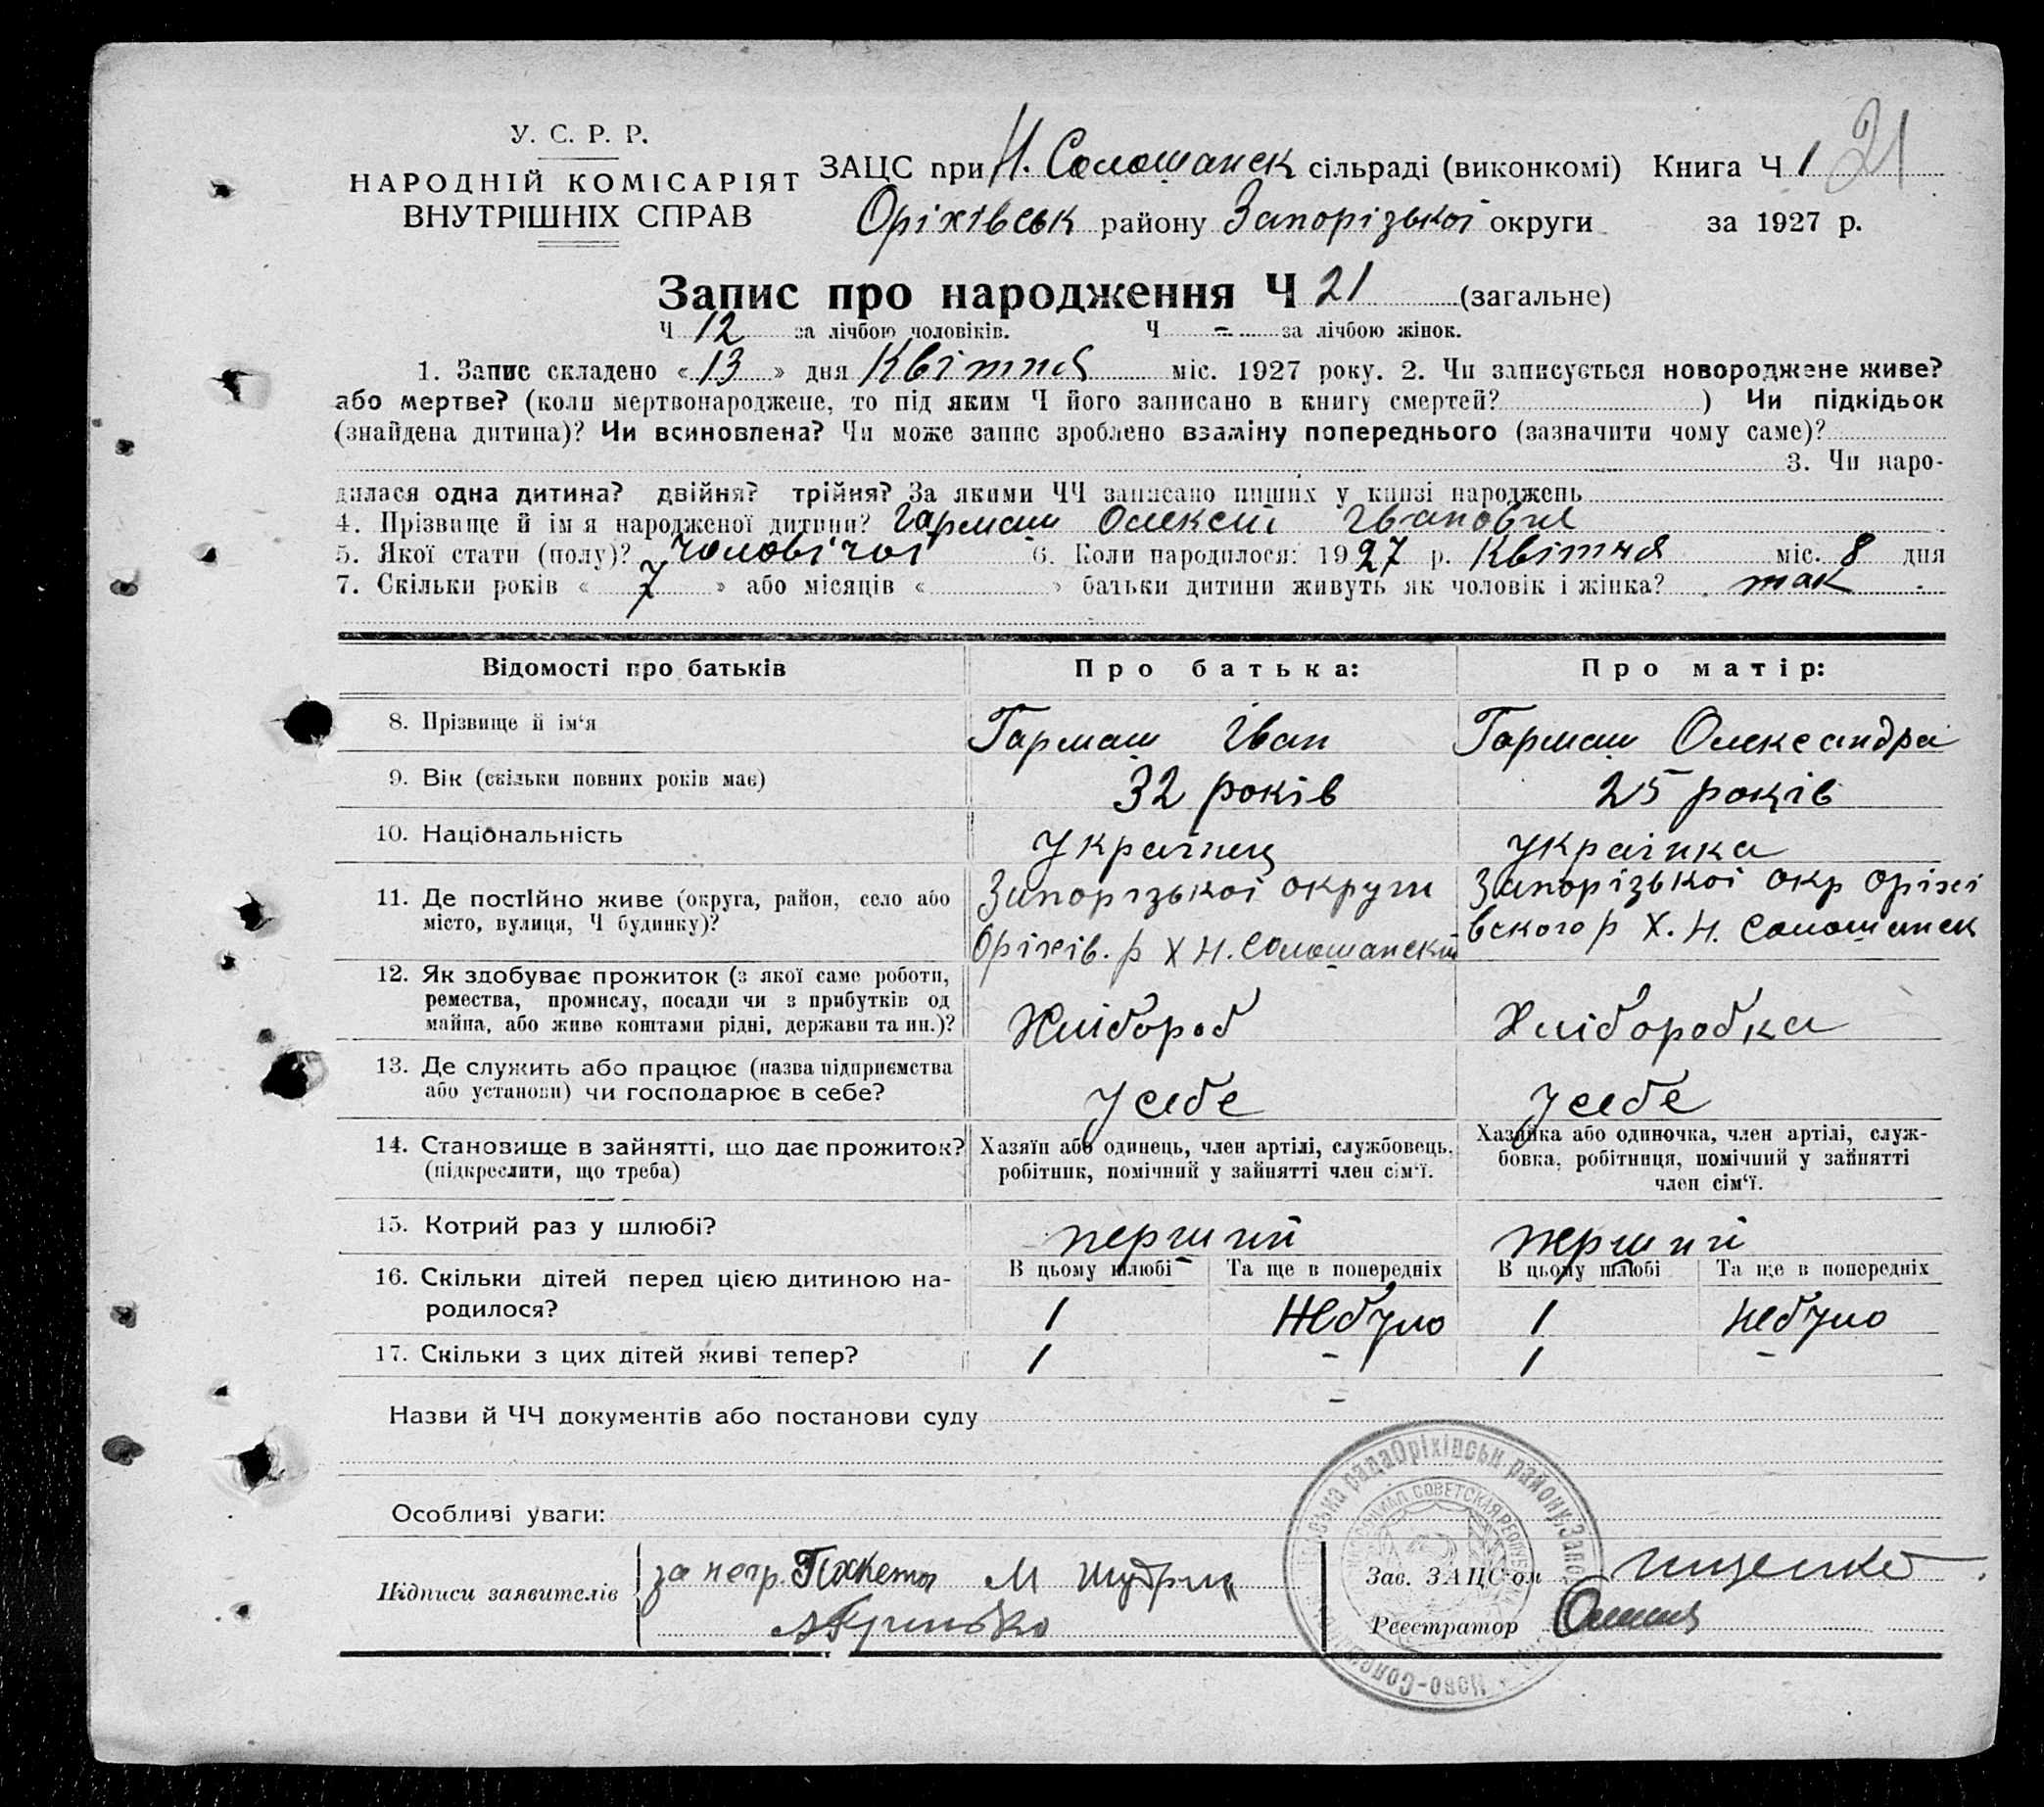 У. С. Р. Р.
НАРОДНІЙ КОМІСАРІЯТ
ВНУТРІШНІХ СПРАВ
ЗАЦС при Н. Солошанск сільраді (виконкомі) Книга Ч 1 21
Оріхівськ району Запорізької округи за 1927 р.
Запис про народження Ч 21 (загальне)
Ч 12 за лічбою чоловіків. Ч - за лічбою жінок.
1. Запис складено « 13 » дня Квітня міс. 1927 року. 2. Чи записується новороджене живе?
або мертве? (коли мертвонароджене, то під яким Ч його записано в книгу смертей? ) Чи підкідьок
(знайдена дитина)? Чи всиновлена? Чи може запис зроблено взаміну попереднього (зазначити чому саме)?
3. Чи наро-
дилася одна дитина? двійня? трійня? За якими ЧЧ записано інших у книзі народжень
4. Прізвище й ім я народженої дитини? Гармаш Олексій Іванович
5. Якої стати (полу)? чоловічої 6. Коли народилося: 1927 р. Квітня міс. 8 дня
7. Скільки років « 7 » або місяців « » батьки дитини живуть як чоловік і жінка? так
Відомості про батьків Про батька: Про матір:
8. Прізвище й ім‘я Гармаш Іван Гармаш Олександра
9. Вік (скільки повних років має) 32 років 25 років
10. Національність Українец Українка
11. Де постійно живе (округа, район, село або
місто, вулиця, Ч будинку)?
Запорізької округи
Оріхів. р Х Н. Солошанский
Запорізької окр Оріхі
вского р Х. Н. Солошанск
12. Як здобуває прожиток (з якої саме роботи,
ремества, промислу, посади чи з прибутків од
майна, або живе коштами рідні, держави та ин.)?
Хлібороб Хліборобка
13. Де служить або працює (назва підприємства
або установи) чи господарює в себе?
У себе У себе
14. Становище в зайнятті, що дає прожиток?
(підкреслити, що треба)
Хазяїн або одинець, член артілі, службовець,
робітник, помічний у зайнятті член сім‘ї.
Хазяйка або одиночка, член артілі, служ-
бовка, робітниця, помічний у зайнятті
член сім‘ї.
15. Котрий раз у шлюбі? перший перший
16. Скільки дітей перед цією дитиною на-
родилося?
В цьому шлюбі Та ще в попередніх В цьому шлюбі Та ще в попередніх
1 Небуло 1 Небуло
17. Скільки з цих дітей живі тепер? 1 - 1 -
Назви й ЧЧ документів або постанови суду -
Особливі уваги:
Підписи заявителів
за негр.
Зав. ЗАЦС-ом
Реєстратор
рада Оріхівськ району, Запо